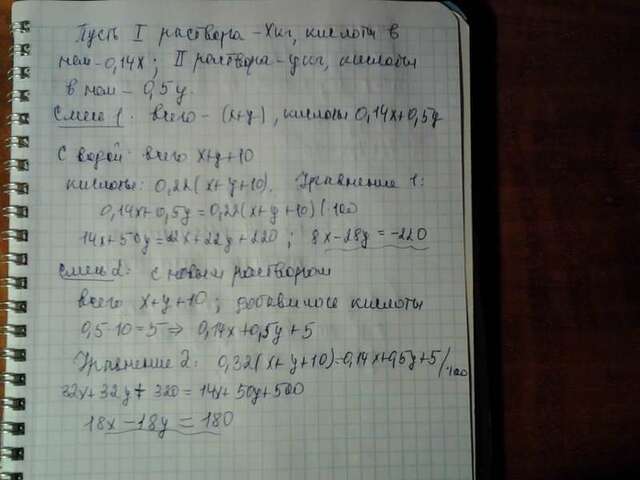 Пусть I раствора - x кг, кислоты в
нем - 0,14x; II раствора - y кг, кислоты
в нем - 0,5y.
Смесь 1. всего - (x+y), кислоты 0,14x+0,5y
С водой: всего x+y+10
кислоты: 0,22(x+y+10). Уравнение 1:
0,14x+0,5y=0,22(x+y+10) | 100
14x+50y=22x+22y+220 ; 8x-28y=-220
Смесь 2: с новым раствором
всего x+y+10 ; добавилось кислоты
0,5·10=5 ⇒ 0,14x+0,5y+5
Уравнение 2: 0,32(x+y+10)=0,14x+0,5y+5 /·100
32x+32y+320=14x+50y+500
18x-18y=180